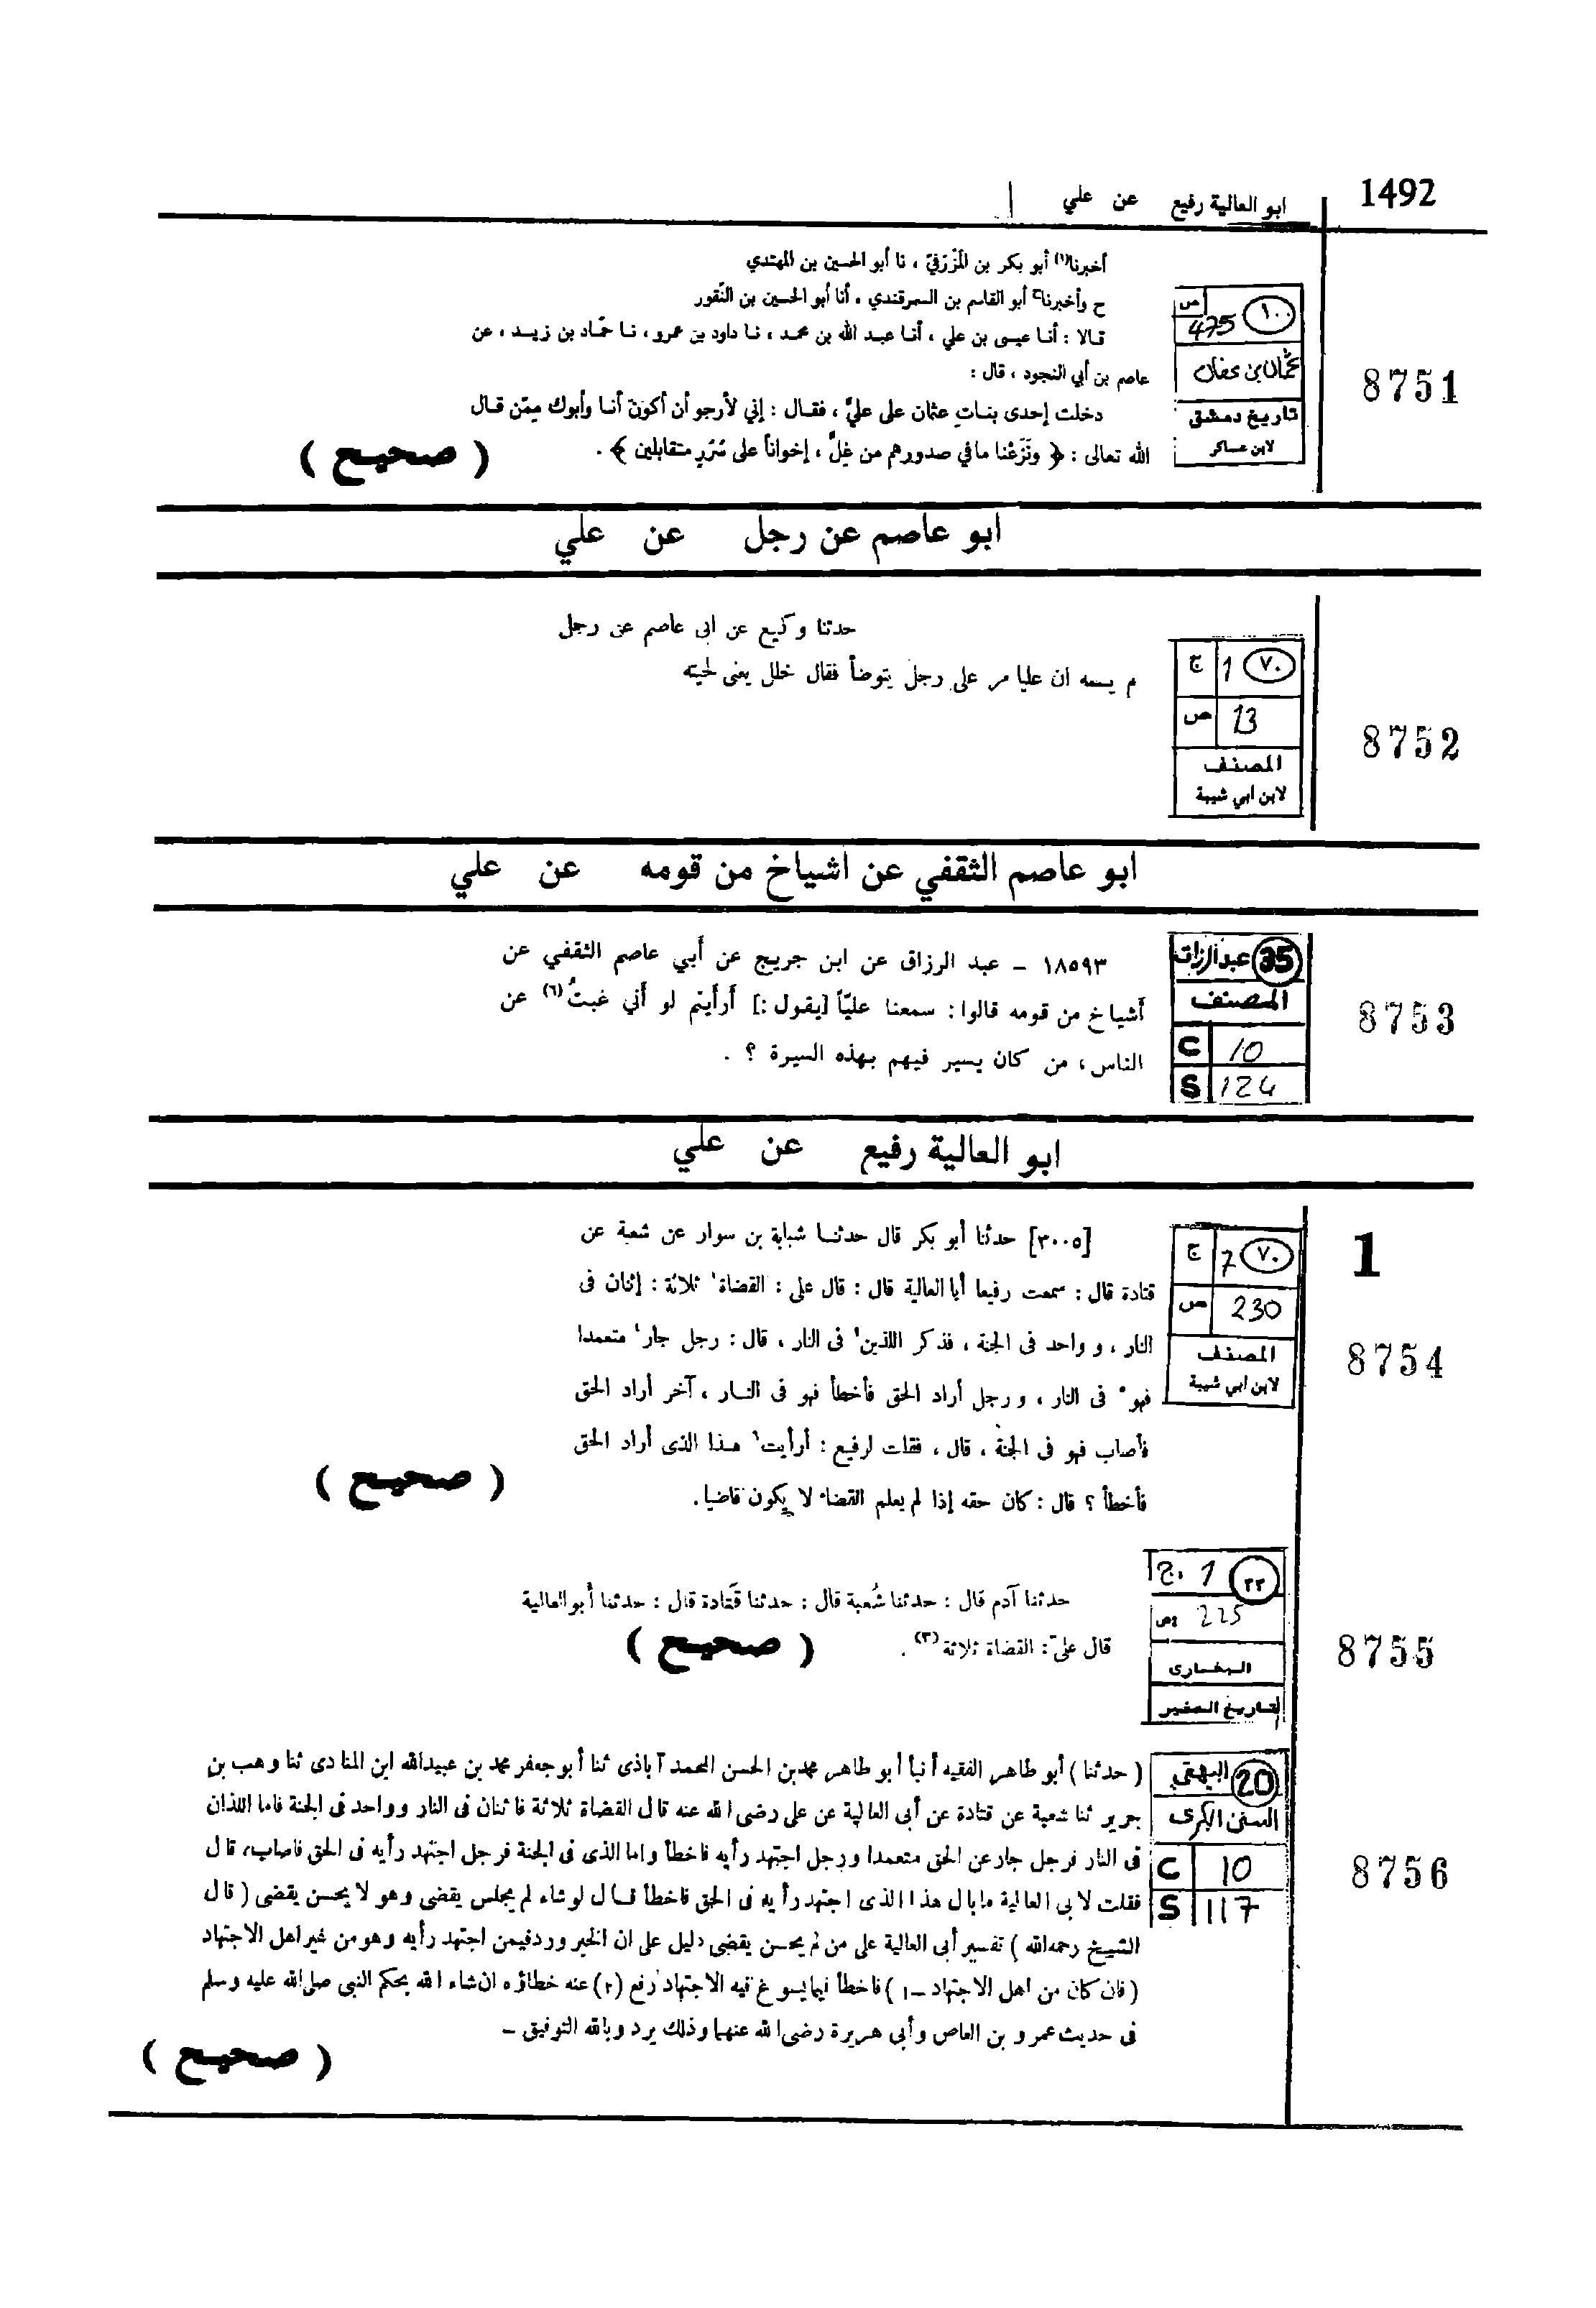 1492
ابو العالية رفيع عن علي
أخبرنا(١) أبو بكر بن المَزْرَفيّ ، نا أبو الحسين بن المهتدي
ح وأخبرنا أبو القاسم بن السمرقندي ، أنا أبو الحسين بن النَّقور
قالا : أنا عيسى بن علي ، أنا عبد الله بن محمد ، نا داود بن عمرو ، نا حمّاد بن زيد ، عن
عاصم بن أبي النجود ، قال :
دخلت إحدى بناتِ عثمان على عليٍّ ، فقال : إني لأرجو أن أكون أنا وأبوك ممّن قال
الله تعالى : ﴿ ونَزَعْنا مافي صدورهم من غِلٍّ ، إخواناً على سُرُرٍ متقابلين ﴾ .
( صحيح )
١٠ ص 475
عثمان بن عفان
تاريخ دمشق
لابن عساكر
8751
ابو عاصم عن رجل عن علي
حدثنا وكيع عن ابى عاصم عن رجل
م يسمه ان عليا مر على رجل يتوضأ فقال خلل يعنى لحيته
٧٠ 1 ج
13 ص
المصنف
لابن ابي شيبة
8752
ابو عاصم الثقفي عن اشياخ من قومه عن علي
١٨٥٩٣ – عبد الرزاق عن ابن جريج عن أبي عاصم الثقفي عن
أشياخ من قومه قالوا : سمعنا عليّاً [يقول :] أرأيتم لو أني غبتُ(٦) عن
الناس ، من كان يسير فيهم بهذه السيرة ؟ .
35 عبد الرزاق
المصنف
C 10
S 124
8753
ابو العالية رفيع عن علي
[٣٠٠٥] حدثنا أبو بكر قال حدثنا شبابة بن سوار عن شعبة عن
قتادة قال : سمعت رفيعا أبا العالية قال : قال على : القضاة ثلاثة : إثنان فى
النار ، و واحد فى الجنة ، فذكر اللذين فى النار ، قال : رجل جار متعمدا
فهو فى النار ، و رجل أراد الحق فأخطأ فهو فى النار ، آخر أراد الحق
فأصاب فهو فى الجنة ، قال ، فقلت لرفيع : أرأيت هذا الذى أراد الحق
فأخطأ ؟ قال : كان حقه إذا لم يعلم القضاء لا يكون قاضيا .
( صحيح )
٧٠ 7 ج
230 ص
المصنف
لابن ابي شيبة
1
8754
حدثنا آدم قال : حدثنا شُعبة قال : حدثنا قَتادة قال : حدثنا أبو العالية
قال عليّ : القضاة ثلاثة(٣) .
( صحيح )
٣٣ 1 ج
225 ص
البخارى
تاريخ الصغير
8755
( حدثنا ) أبو طاهر الفقيه أنبأ أبو طاهر محمد بن الحسن المحمد آباذى ثنا أبو جعفر محمد بن عبيد الله ابن المنادى ثنا وهب بن
جرير ثنا شعبة عن قتادة عن أبى العالية عن على رضى الله عنه قال القضاة ثلاثة فاثنان فى النار وواحد فى الجنة فاما اللذان
فى النار فرجل جار عن الحق متعمدا ورجل اجتهد رأيه فاخطأ واما الذى فى الجنة فرجل اجتهد رأيه فى الحق فاصاب، قال
فقلت لابى العالية مابال هذا الذى اجتهد رأيه فى الحق فاخطأ قال لو شاء لم يجلس يقضى وهو لا يحسن يقضى ( قال
الشيخ رحمه الله ) تفسير أبى العالية على من لم يحسن يقضى دليل على ان الخبر ورد فيمن اجتهد رأيه وهو من غير اهل الاجتهاد
( فان كان من اهل الاجتهاد –١ ) فاخطأ فيما يسوغ فيه الاجتهاد رفع (٢) عنه خطاؤه ان شاء الله بحكم النبى صلى الله عليه وسلم
فى حديث عمرو بن العاص وأبى هريرة رضى الله عنهما وذلك يرد وبالله التوفيق –
( صحيح )
20 البيهقي
السنن الكبرى
C 10
S 117
8756